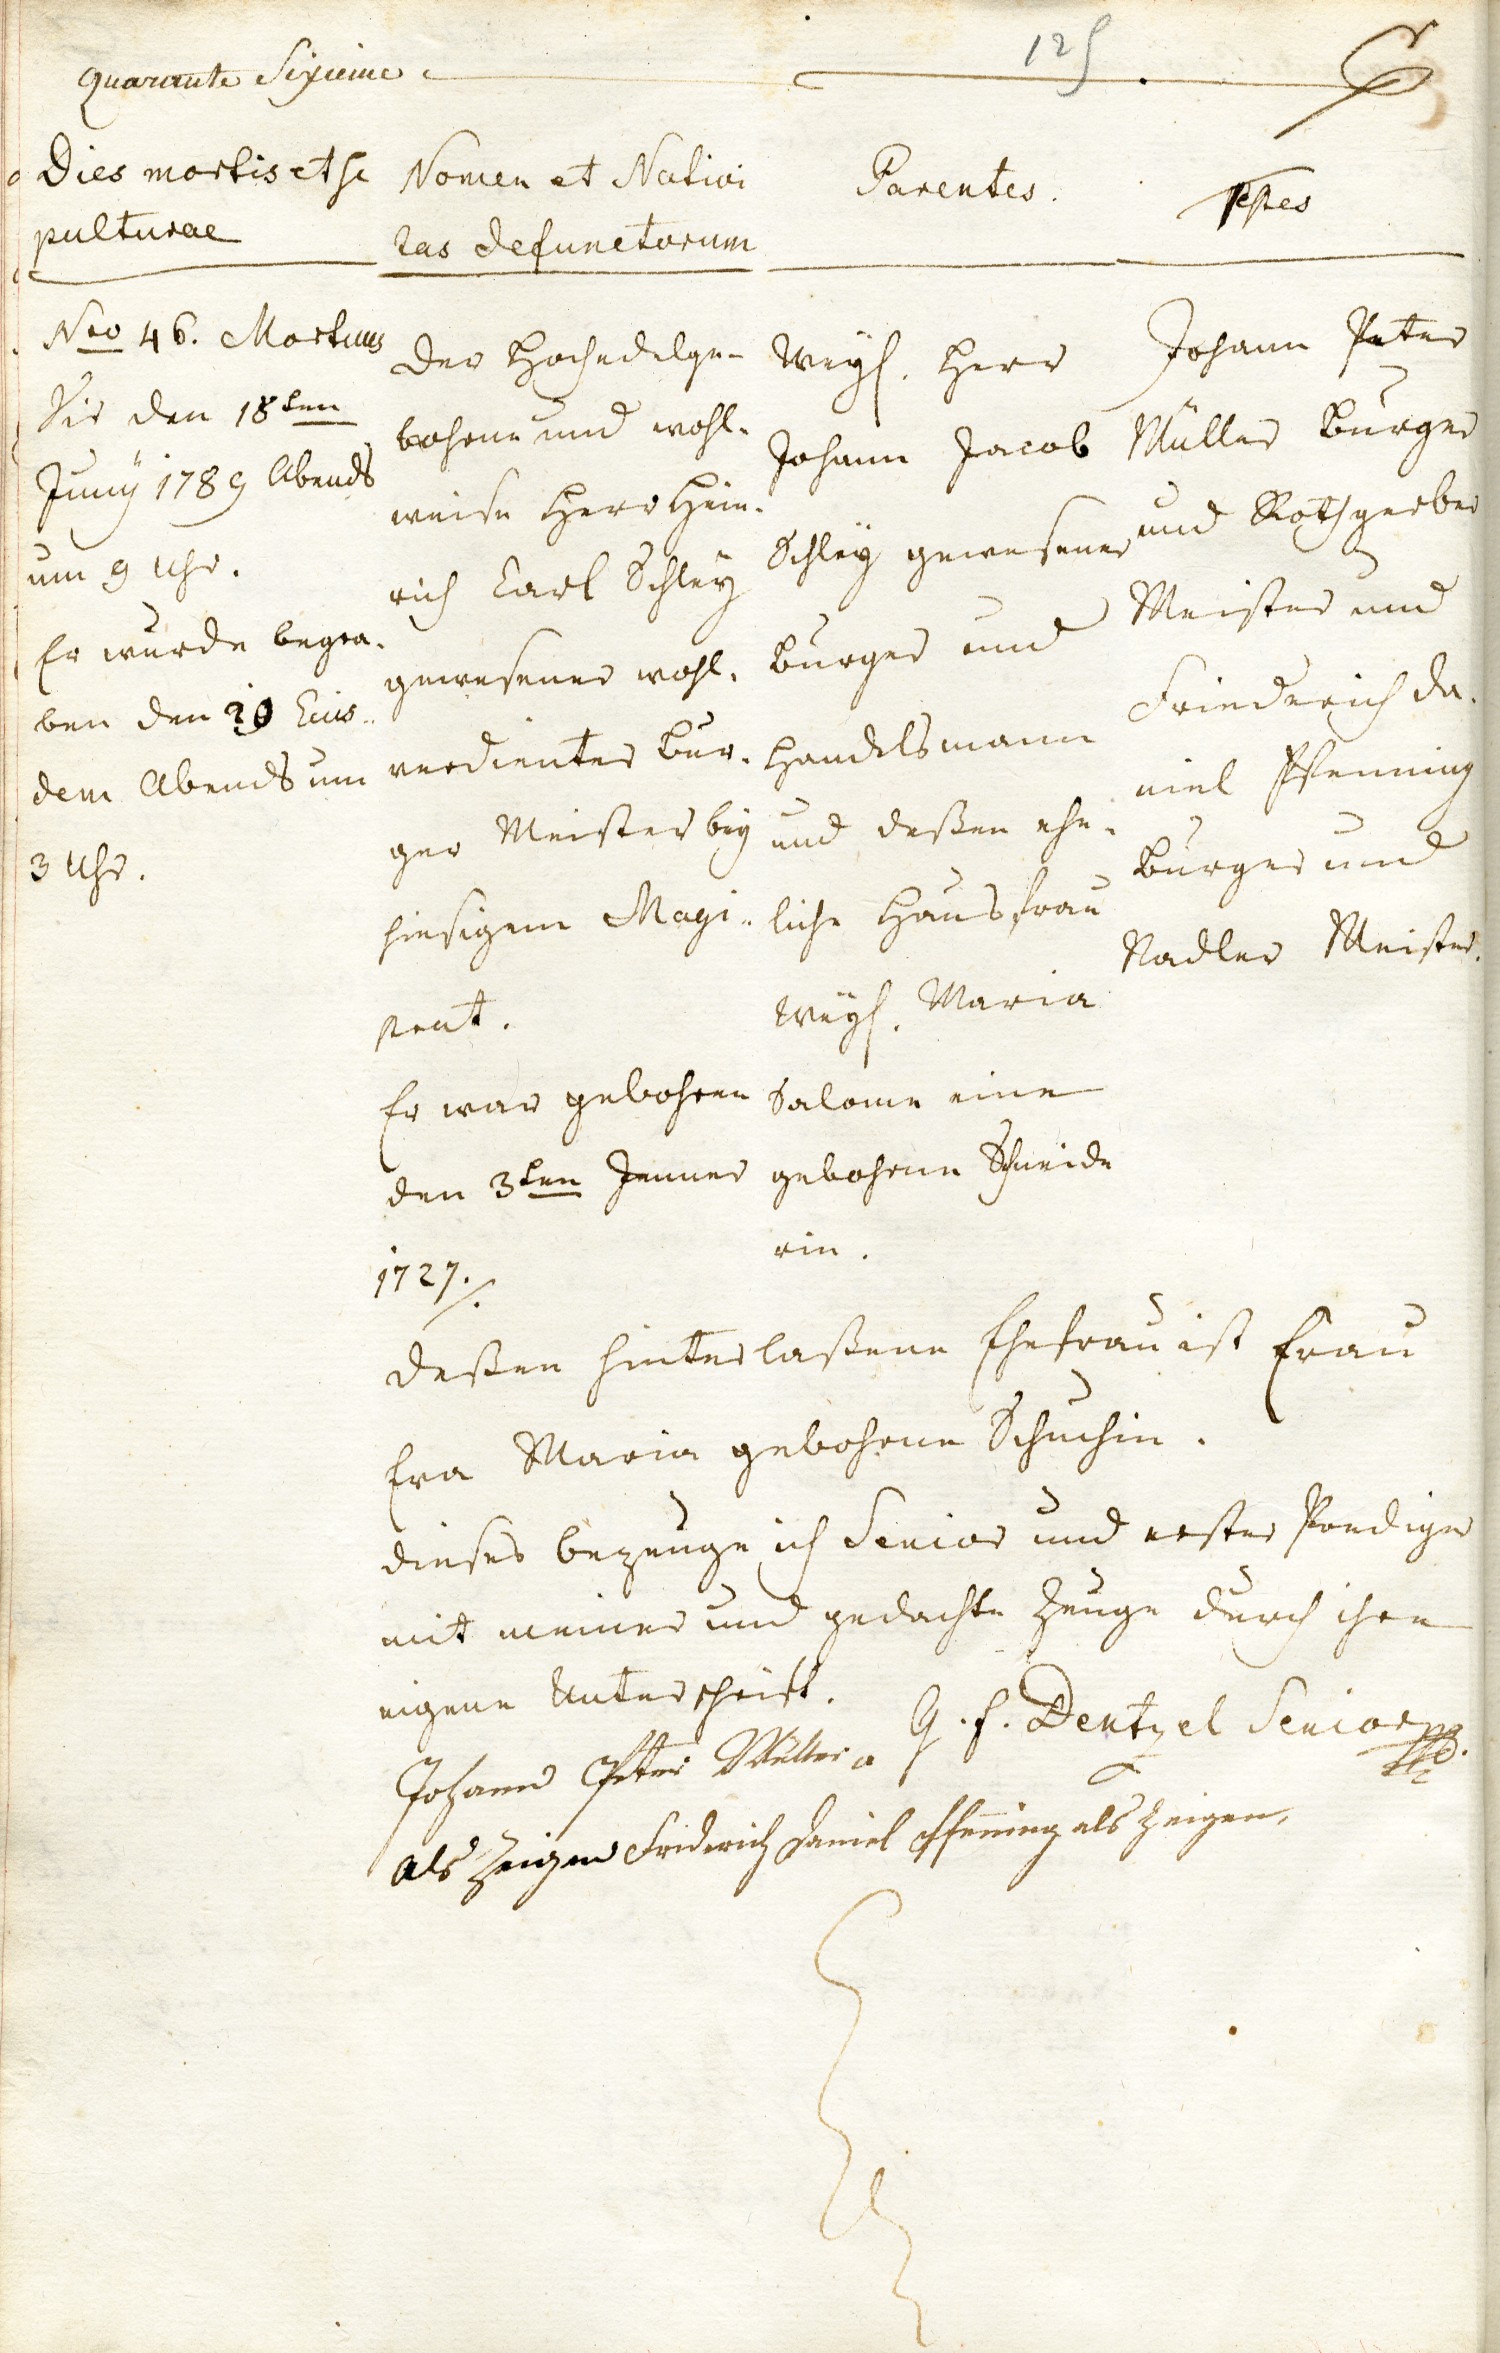 Quarante Sixieme
125
Dies mortis et se
pulturae
No 46. Mortuus
Sis den 18ten
Juny 1789 Abends
um 9 Uhr.
Er wurde begra-
ben den 20 Eius-
dem Abends um
3 Uhr.
Nomen et Nativi
tas defunctorum
Der Hochedelge-
bohrne und wohl-
weise Herr Hein-
rich Carl Schleÿ
gewesener wohl-
verdienter Bur-
ger Meister beÿ
hiesigem Magi-
strat.
Er war gebohren
den 3ten Jenner
1727./.
Parentes.
Weÿl. Herr
Johann Jacob
Schleÿ gewesener
Burger und
Handelsmann
und deßen ehe-
liche Hausfrau
Weÿl. Maria
Salome eine
gebohrne Schneide
rin.
Testes
Johann Peter
Müller Burger
und Rothgerber
Meister und
Friederich Da-
niel Pfenning
Burger und
Nadler Meister.
Deßen hinterlaßene Ehefrau ist Frau
Eva Maria gebohrne Schuchin.
dieses bezeuge ich Senior und erster Prediger
mit meiner und gedachte Zeuge durch ihre
eigene Unterschrift.
G. F. Dentzel Senior
Johann Peter Müller
als Zeigen Friderich Daniel Pfening als Zeigen,